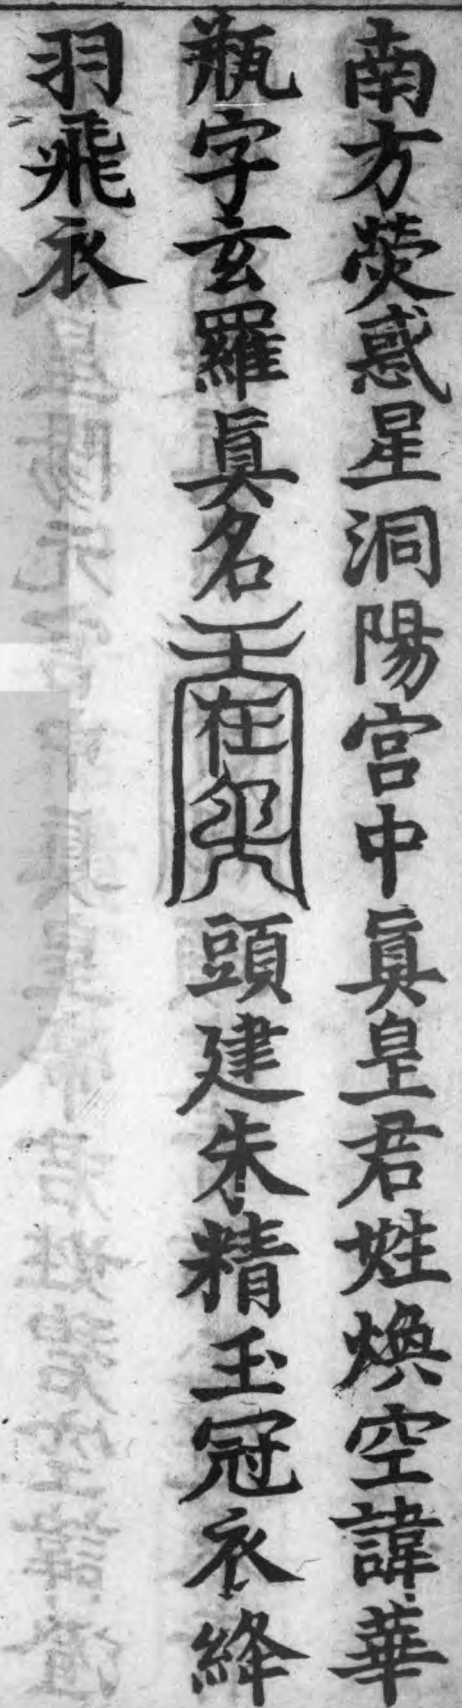 南方熒惑星洞陽宮中眞皇君姓煥空諱華
瓶字玄羅眞名頭建朱精玉冠衣絳
羽飛衣